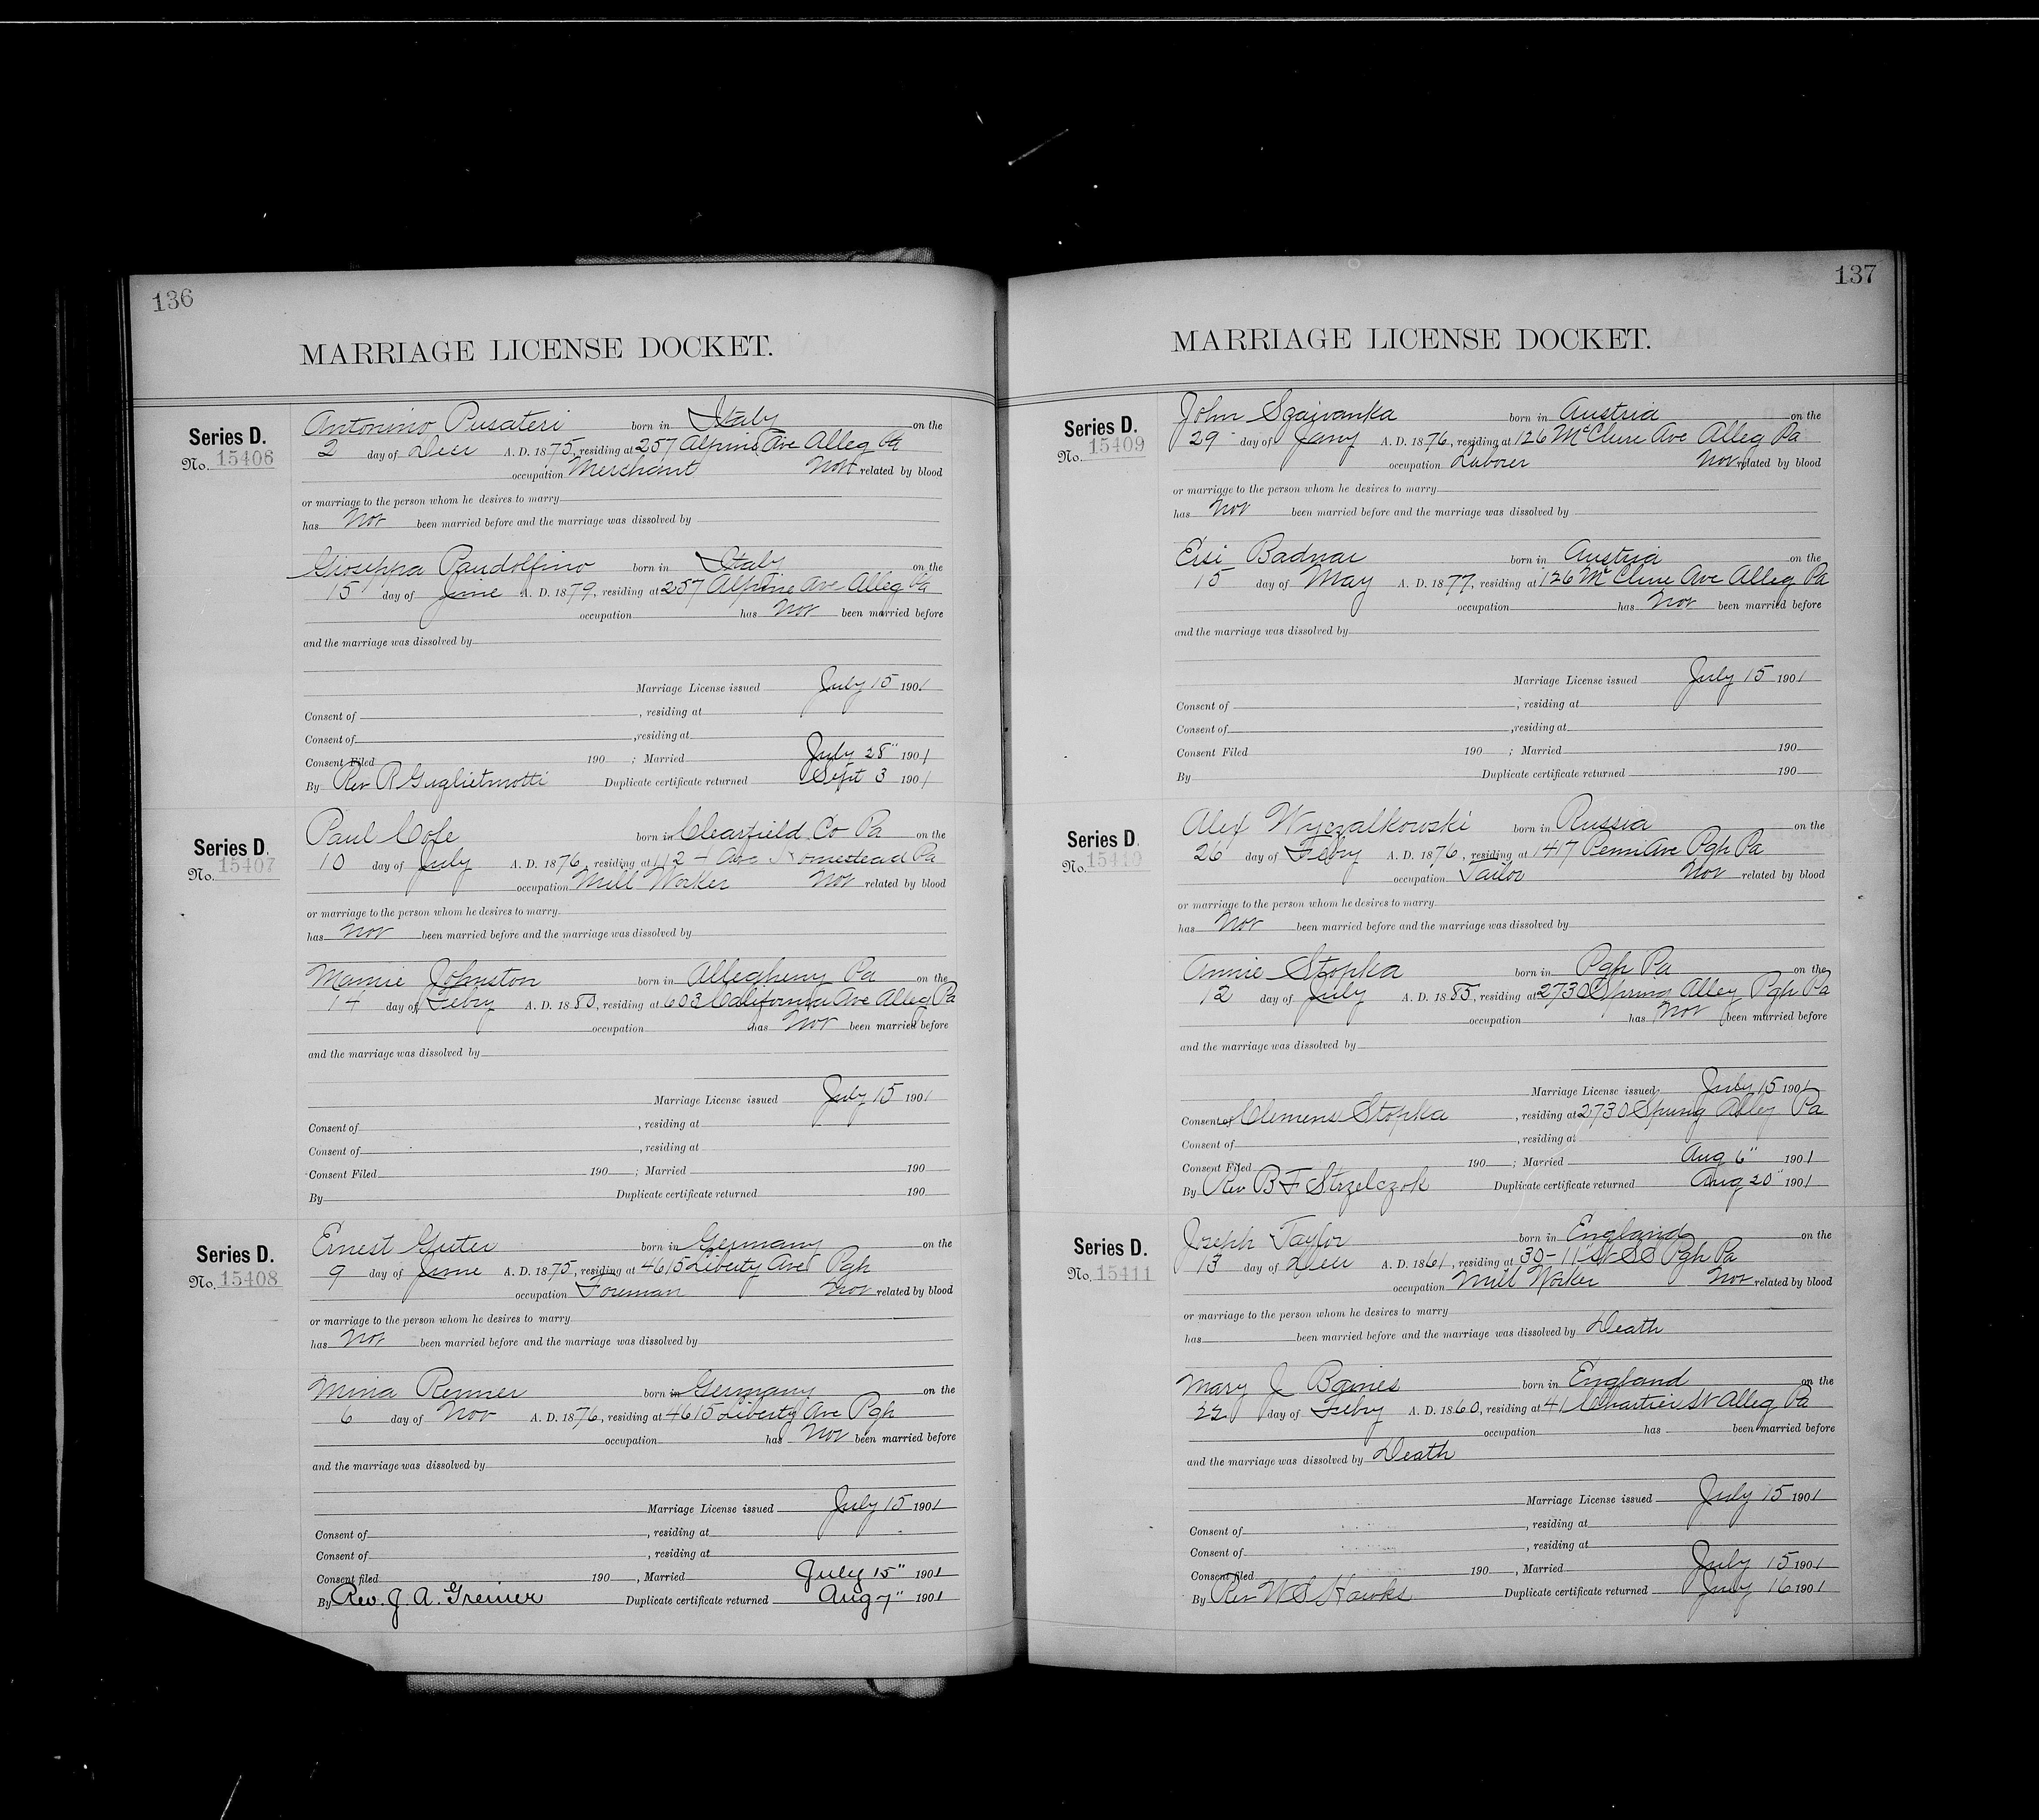 136
MARRIAGE LICENSE DOCKET.
Series D.
No. 15406
Antonino Pusateri born in Italy on the
2 day of Decr A. D. 1875, residing at 257 Alpine Ave Alleg Pa
occupation Merchant Not related by blood
or marriage to the person whom he desires to marry
has Not been married before and the marriage was dissolved by
Gioseppa Pandolfino born in Italy on the
15 day of June A. D. 1879, residing at 257 Alpine Ave Alleg Pa
occupation has Not been married before
and the marriage was dissolved by
Marriage License issued July 15 1901
Consent of , residing at
Consent of , residing at
Consent Filed 190 ; Married July 28" 1901
By Rev R Guglielmotti Duplicate certificate returned Sept 3 1901
Series D.
No. 15407
Paul Cole born in Clearfield Co Pa on the
10 day of July A. D. 1876, residing at 112 - Ave Homestead Pa
occupation Mill Worker Not related by blood
or marriage to the person whom he desires to marry
has Not been married before and the marriage was dissolved by
Mamie Johnston born in Allegheny Pa on the
14 day of Febry A. D. 1880, residing at 603 California Ave Alleg Pa
occupation has Not been married before
and the marriage was dissolved by
Marriage License issued July 15 1901
Consent of , residing at
Consent of , residing at
Consent Filed 190 ; Married 190
By Duplicate certificate returned 190
Series D.
No. 15408
Ernest Guter born in Germany on the
9 day of June A. D. 1875, residing at 4615 Liberty Ave Pgh
occupation Foreman Not related by blood
or marriage to the person whom he desires to marry
has Not been married before and the marriage was dissolved by
Mina Renner born in Germany on the
6 day of Nov A. D. 1876, residing at 4615 Liberty Ave Pgh
occupation has Not been married before
and the marriage was dissolved by
Marriage License issued July 15 1901
Consent of , residing at
Consent of , residing at
Consent filed 190 , Married July 15" 1901
By Rev. J. A. Greiner Duplicate certificate returned Aug 7" 1901
137
MARRIAGE LICENSE DOCKET.
Series D.
No. 15409
John Szajvanka born in Austria on the
29 day of Jany A. D. 1876, residing at 126 McClure Ave Alleg Pa
occupation Laborer Not related by blood
or marriage to the person whom he desires to marry
has Not been married before and the marriage was dissolved by
Ersi Badnar born in Austria on the
15 day of May A. D. 1877, residing at 126 McClure Ave Alleg Pa
occupation has Not been married before
and the marriage was dissolved by
Marriage License issued July 15 1901
Consent of , residing at
Consent of , residing at
Consent Filed 190 ; Married 190
By Duplicate certificate returned 190
Series D.
No. 15410
Alex Wyczalkowski born in Russia on the
26 day of Febry A. D. 1876, residing at 147 Penn Ave Pgh Pa
occupation Tailor Not related by blood
or marriage to the person whom he desires to marry
has Not been married before and the marriage was dissolved by
Annie Stopka born in Pgh Pa on the
12 day of July A. D. 1885, residing at 2730 Spring Alley Pgh Pa
occupation has Not been married before
and the marriage was dissolved by
Marriage License issued July 15 1901
Consent of Clemens Stopka , residing at 2730 Spring Alley Pa
Consent of , residing at
Consent Filed 190 ; Married Aug 6" 1901
By Rev B F Strzelczok Duplicate certificate returned Aug 20" 1901
Series D.
No. 15411
Joseph Taylor born in England on the
13 day of Decr A. D. 1861, residing at 30 - 11" St SS Pgh Pa
occupation Mill Worker Not related by blood
or marriage to the person whom he desires to marry
has been married before and the marriage was dissolved by Death
Mary J Baines born in England on the
22 day of Febry A. D. 1860, residing at 41 Chartier St Alleg Pa
occupation has been married before
and the marriage was dissolved by Death
Marriage License issued July 15 1901
Consent of , residing at
Consent of , residing at
Consent filed 190 , Married July 15 1901
By Rev W S Hawks Duplicate certificate returned July 16 1901